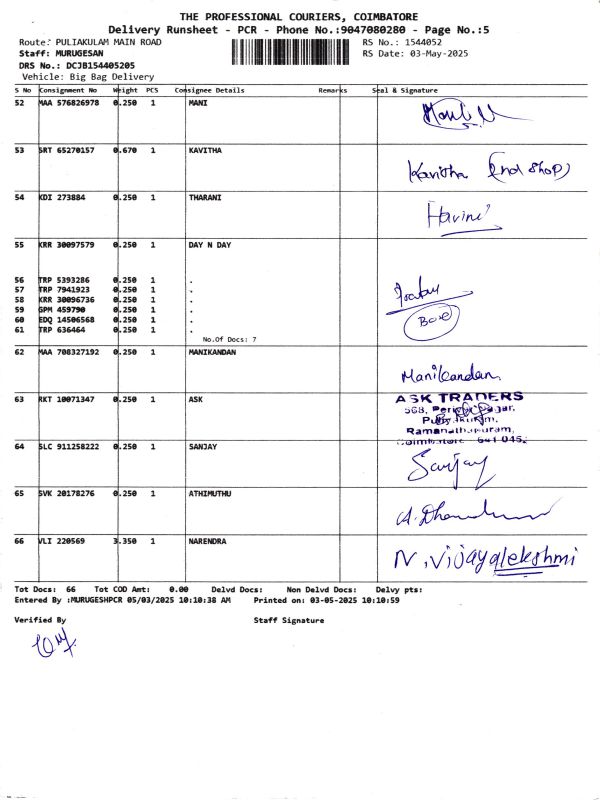 THE PROFESSIONAL COURIERS, COIMBATORE
Delivery Runsheet - PCR - Phone No.:9047080280 - Page No.:5
Route: PULIAKULAM MAIN ROAD RS No.: 1544052
Staff: MURUGESAN RS Date: 03-May-2025
DRS No.: DCJB154405205
Vehicle: Big Bag Delivery
S No Consignment No Weight PCS Consignee Details Remarks Seal & Signature
52 MAA 576826978 0.250 1 MANI
53 SRT 65270157 0.670 1 KAVITHA Kavitha (2nd shop)
54 KDI 273884 0.250 1 THARANI Harini
55 KRR 30097579 0.250 1 DAY N DAY
56 TRP 5393286 0.250 1 .
57 TRP 7941923 0.250 1 .
58 KRR 30096736 0.250 1 .
59 GPM 459790 0.250 1 .
60 EDQ 14506568 0.250 1 .
61 TRP 636464 0.250 1 .
No.Of Docs: 7
62 MAA 708327192 0.250 1 MANIKANDAN Manikandan
63 RKT 10071347 0.250 1 ASK ASK TRADERS
568, Periyar Nagar,
Puliyakulam,
Ramanathapuram,
Coimbatore 641 045.
64 SLC 911258222 0.250 1 SANJAY Sanjay
65 SVK 20178276 0.250 1 ATHIMUTHU
66 VLI 220569 3.350 1 NARENDRA N. Vijayalekshmi
Tot Docs: 66 Tot COD Amt: 0.00 Delvd Docs: Non Delvd Docs: Delvy pts:
Entered By :MURUGESHPCR 05/03/2025 10:10:38 AM Printed on: 03-05-2025 10:10:59
Verified By Staff Signature